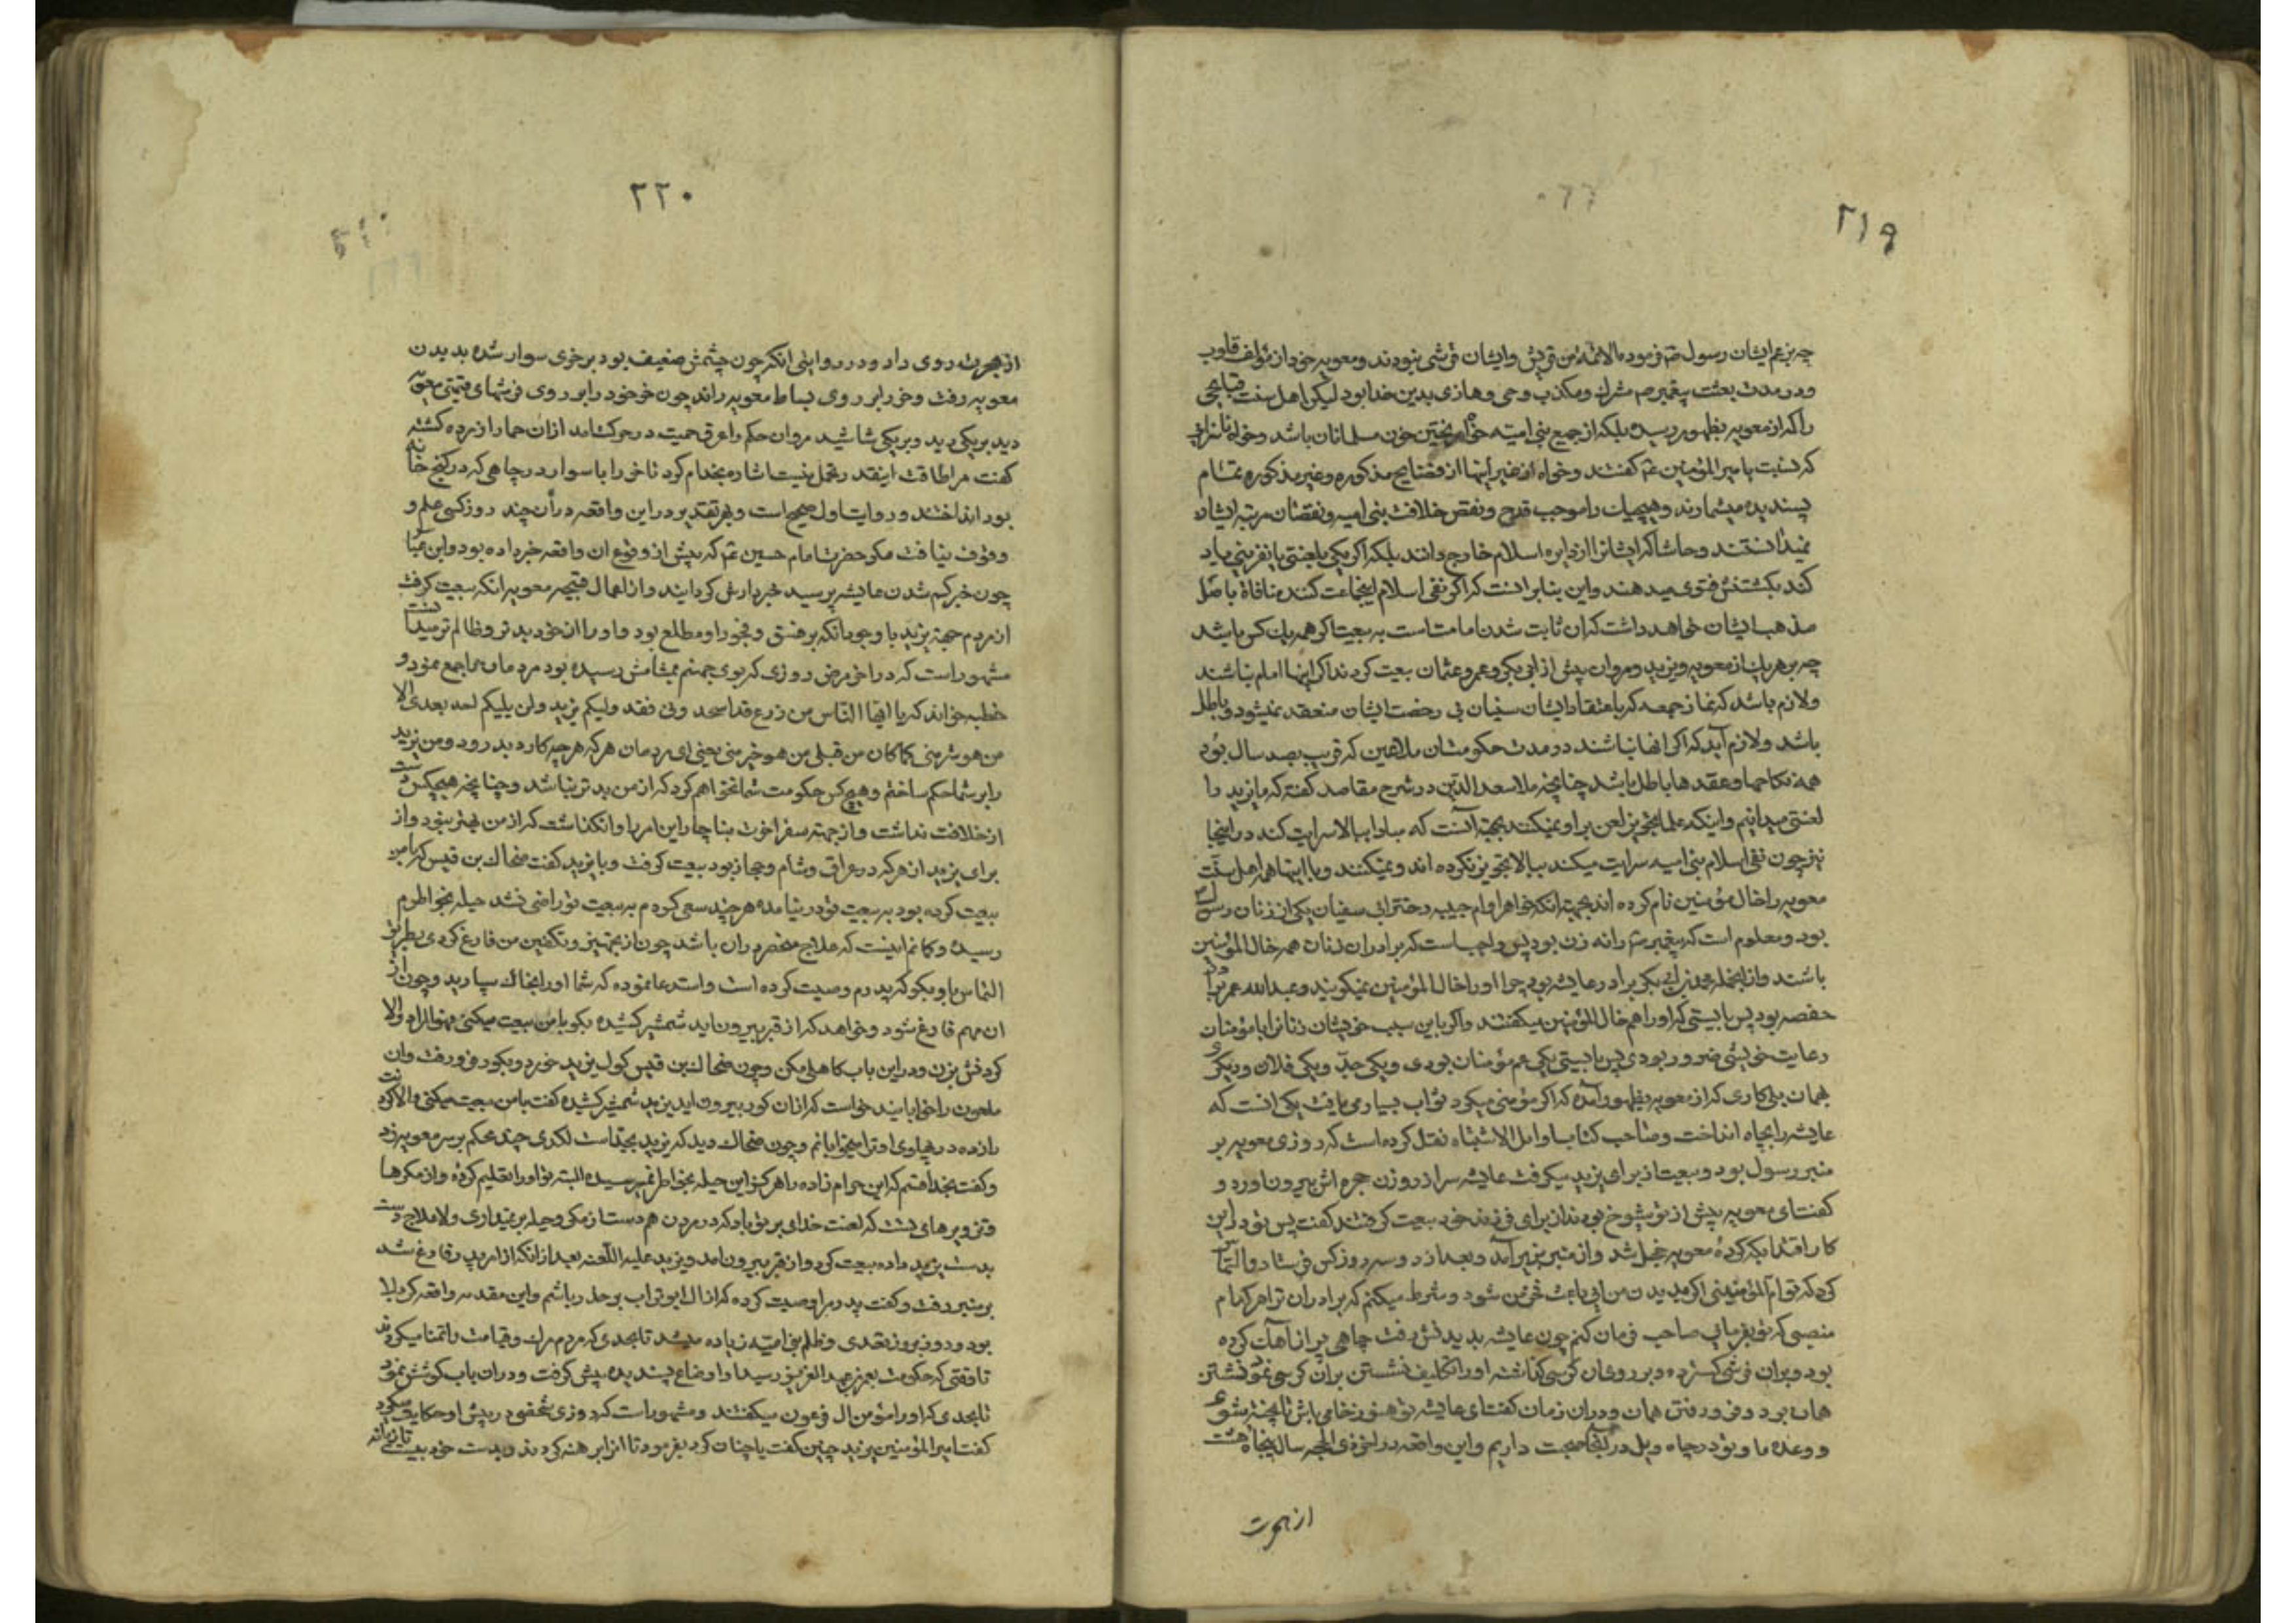 ۲۱۹
چه بزعم ایشان رسول ص فرموده الائمة من قریش وایشان قرشی نبودند ومعویه خود از مؤلف قلوب
ودر مدت بعثت پیغمبر ص مشرک ومکذب وحی وهازی بدین خدا بود لیکن اهل سنت قبایحی
را که از معویه بظهور رسیده بلکه از جمیع بنی امیه خواه ریختن خون مسلمانان باشد وخواه
که نسبت بامیر المؤمنین ع گفتند وخواه از غیر اینها از فضایح مذکوره وغیر مذکوره تمام
پسندیده میشمارند وهیچیک را موجب قدح ونقص خلافت بنی امیه ونقصان مرتبه ایشان
نمیدانستند وحاشا که ایشانرا از دایره اسلام خارج دانند بلکه اگر یکی یا لعنتی یا نفرینی یاد
کند بکشتنش فتوی میدهند واین بنابر انست که اگر نفی اسلام اینجماعت کنند منافاة باصل
مذهب ایشان خواهد داشت که ان ثابت شدن امامتست به بیعت اگر همه یک کس باشد
چه بر هر یک از معویه ویزید ومروان پیش از ابی بکر وعمر وعثمان بیعت کردند اگر اینها امام نباشند
ولازم باشد که نماز جمعه که باعتقاد ایشان سنیان بی رخصت ایشان منعقد نمیشود باطل
باشد ولازم آید که اگر انها نباشند در مدت حکومتشان ملاعین که قریب بصد سال بود
همه نکاحها وعقدها باطل باشد چنانچه ملا سعد الدین در شرح مقاصد گفته که ما یزید را
لعنتی میدانیم واینکه علما تجویز لعن بر او نمیکنند بجهة آنست که مبادا ببالا سرایت کند در اینجا
نیز چون نفی اسلام بنی امیه سرایت میکند ببالا تجویز نکرده اند ونمیکنند وبا اینها همه اهل سنت
معویه را خال مؤمنین نام کرده اند بجهة انکه خواهر او ام حبیبه دختر ابی سفیان یکی از زنان رسول
بود ومعلوم است که پیغمبر ص را نه زن بود پس واجب است که برادران زنان همه خال المؤمنین
باشند واز انجمله محمد بن ابی بکر برادر عایشه بود چرا اورا خال المؤمنین نمیگویند وعبدالله عمر برادر
حفصه بود پس بایستی که اورا هم خال المؤمنین میگفتند واگر باین سبب خویشان زنانرا با مؤمنان
رعایت خویشی ضرور بودی پس بایستی یکی عم مؤمنان بودی ویکی جد ویکی فلان ودیگر
همان یک کاری که از معویه بظهور آمده که اگر مؤمنی میکرد ثواب بسیار می یافت یکی انست که
عایشه را بچاه انداخت وصاحب کتاب اوایل الاشتباه نقل کرده است که روزی معویه بر
منبر رسول بود وبیعت از برای یزید میگرفت عایشه سر از روزن حجره اش بیرون اورد و
گفت ای معویه پیش از تو شیوخ بودند از برای فرزند خود بیعت گرفتند گفت نه پس تو در این
کار اقتدا بکه کردهٔ معویه خجل شد واز منبر بزیر آمد وبعد از دو سه روز کس فرستاد والتماس
کرد که تو ام المؤمنینی اگر بدیدن من ایی باعث شود وشرط میکنم که برادران ترا هر کدام
منصبی که تو بفرمایی صاحب فرمان کنم چون عایشه بدیدنش رفت چاهی پر از آهک کرده
بود وبران فرشی گسترده وبر روی ان کرسی گذاشته اورا تکلیف نشستن بران کرسی نمود نشستن
همان بود وفرو رفتن همان ودران زمان گفت ای عایشه تو هنوز خامی باش تا پخته شوی
ووعده ما وتو در چاه ویل در انجا صحبت داریم واین واقعه در اخر ذی الحجه سال پنجاه هشت
از هجرت
۲۲۰
از هجرت روی داد ودر روایتی انکه چون چشمش ضعیف بود بر خری سوار شده بدیدن
معویه رفت وخر را بر روی بساط معویه راند چون خر خود را بر روی فرشهای قیمتی معویه
دید بریکی رید وبریکی شاشید مروان حکم را عرق حمیت در حرکت امد ازان حمار ازرده گشته
گفت مرا طاقت اینقدر تحمل نیست اشاره بخدام کرد تا خر را با سوار در چاهی که در کنج خانه
بود انداختند وروایت اول صحیح است وبهر تقدیر در این واقعه دران چند روز کسی علم و
وقوف نیافت مگر حضرت امام حسین ع که پیش از وقوع ان واقعه خبر داده بود وابن عباس
چون خبر گم شدن عایشه پرسید خبردارش گردانیدند واز اعمال قبیحه معویه انکه بیعت گرفت
از مردم جهة یزید با وجود انکه بر فسق وفجور او مطلع بود واورا از خود بدتر وظالم تر میدانست
مشهور است که در اخر مرض روزی که بوی جهنم بمشامش رسیده بود مردمان را جمع نمود و
خطبه خواند که یا ایها الناس من زرع قد استحصد وانی فقد ولیکم یزید ولن یلیکم احد بعدی الا
من هو شر منی کما کان من قبلی من هو خیر منی یعنی ای مردمان هر که هر چه کارد بدرود ومن یزید
را بر شما حاکم ساختم وهیچ کس حکومت شما نخواهد کرد که از من بدتر نباشد وچنانچه هیچکس دست
از خلافت نداشت واز جهة سفر اخرت بناچار این امر را وانگذاشت که از من بهتر نبود واز
برای یزید از هر که در عراق وشام وحجاز بود بیعت گرفت وبا یزید گفت ضحاک بن قیس که با من
بیعت کرده بود به بیعت تو در نیامده هر چند سعی کردم به بیعت تو راضی نشد حیله بخواطرم
رسیده وگمانم اینست که علاج منحصر دران باشد چون از تجهیز وتکفین من فارغ گردی بطریق
التماس باو بگو که پدرم وصیت کرده است واستدعا نموده که شما اورا بخاک سپارید وچون از
ان مهم فارغ شود وخواهد که از قبر بیرون اید شمشیر کشیده بگو با من بیعت میکنی والا
گردنش بزن ودر این باب کاهلی مکن وچون ضحاک بن قیس گول یزید خورد وبگور فرو رفت وان
ملعون را خوابانید خواست که ازان گور بیرون اید یزید شمشیر کشیده گفت با من بیعت میکنی والا گردنت
را زده در پهلوی او ترا میخوابانم وچون ضحاک دید که یزید بجد است لگدی چند محکم بر سر معویه زد
وگفت بخدا قسم که این حرام زاده را هرگز این حیله بخواطر نمیرسیده البته تو اورا تعلیم کرده واز مکرها
وتزویرهای تست که لعنت خدای بر تو باد که در مردن هم دست از مکر وحیله بر نمیداری ولاعلاج دست
بدست یزید داده بیعت کرد واز قبر بیرون امد ویزید علیه اللعنه بعد از انکه از امر پدر فارغ شد
بر منبر رفت وگفت پدر مرا وصیت کرده که از ال ابو تراب بر حذر باشم واین مقدمه واقعه کربلا
بود وروز بروز تعدی وظلم بنی امیه زیاده میشد تا بحدی که مردم مرگ وقیامت را تمنا میکردند
تا وقتی که حکومت بعمر بن عبد العزیز رسید واو اوضاع پسندیده پیش گرفت ودران باب کوشش نمود
تا بحدی که اورا مؤمن ال فرعون میگفتند ومشهور است که روزی شخصی در پیش او حکایت میکرد
گفت امیر المؤمنین یزید چنین گفت یا چنان کرد بفرمود تا انرا برهنه کردند وبدست خود بیست تازیانه